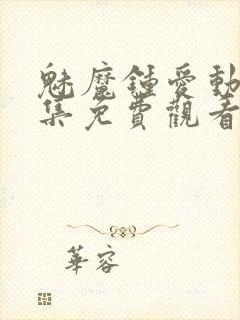 魅魔鍾愛動
集免費觀看
華容